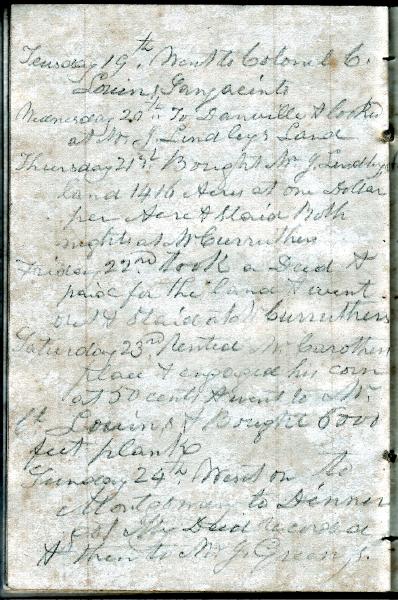 Teusday 19th Went to Colonel C.
Lowins Sanjacinto
Wednesday 20th To Danville & looked
at Mr J. Lindleys Land
Thursday 21st Bought Mr J Lindleys
land 1416 Acres at one Dollar
per Acre & Staid Both
nights at Mr Curruthers
Friday 22nd took a Deed &
paid for the land & went
& Staid at Curruthers
Saturday 23rd Rented Mr Carothers
place & engaged his corn
at 50 cents & went to Mr
Lowins & Bought 6000
feet plank
Sunday 24th Went on to
Montgomery to Dinner
got My Deed recorded
& then to Mr J. Greens.